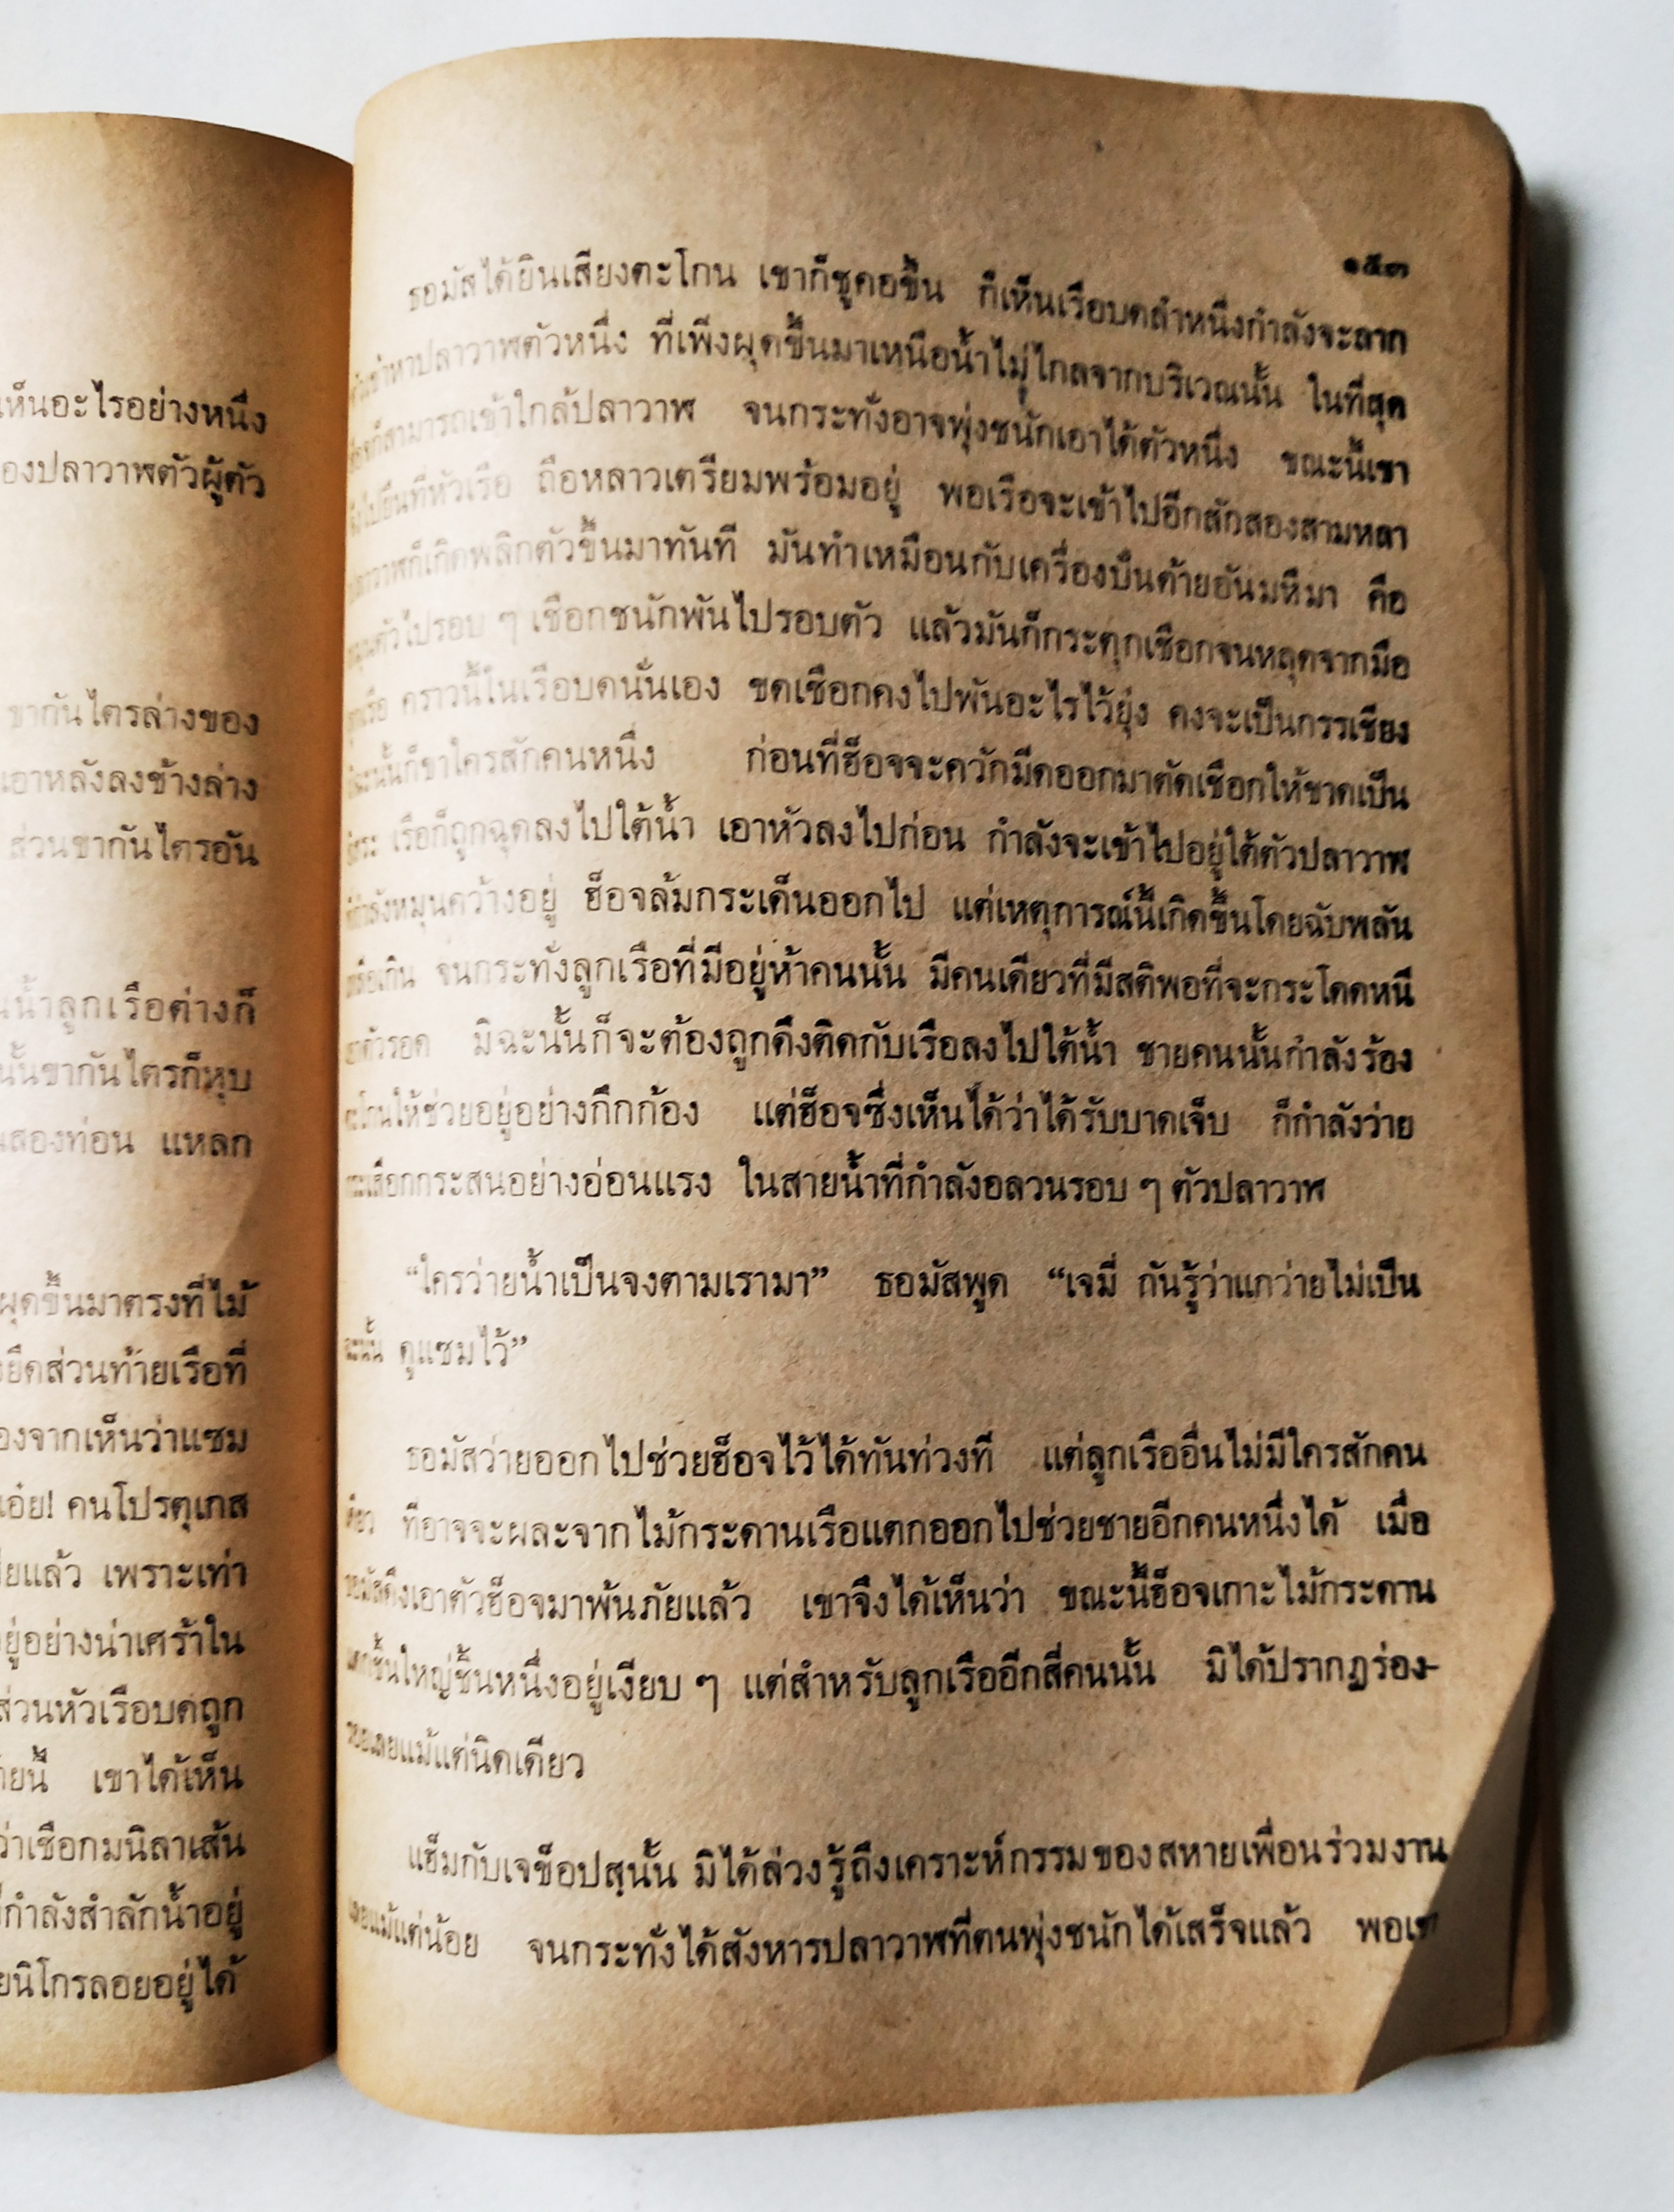 ห็นอะไรอย่างหนึ่ง
องปลาวาฬตัวผู้ตัว
ขากันไตรล่างของ
เอาหลังลงข้างล่าง
ส่วนขากันไตรอัน
น้ำลูกเรือต่างก็
นั้นขากันไตรก็หุบ
สองท่อน แหลก
ผุดขึ้นมาตรงที่ไม้
ยึดส่วนท้ายเรือที่
องจากเห็นว่าแซม
เอ๋ย! คนโปรตุเกส
ยแล้ว เพราะเท่า
อยู่อย่างน่าเศร้าใน
ส่วนหัวเรือบดถูก
ายนี้ เขาได้เห็น
ว่าเชือกมนิลาเส้น
กำลังสำลักน้ำอยู่
ยนิโกรลอยอยู่ได้
๑๕๓
ธอมัสได้ยินเสียงตะโกน เขาก็ชูคอขึ้น ก็เห็นเรือบดลำหนึ่งกำลังจะลาก
เข้าหาปลาวาฬตัวหนึ่ง ที่เพิ่งผุดขึ้นมาเหนือน้ำไม่ไกลจากบริเวณนั้น ในที่สุด
ก็สามารถเข้าใกล้ปลาวาฬ จนกระทั่งอาจพุ่งชนักเอาได้ตัวหนึ่ง ขณะนี้เขา
ไปยืนที่หัวเรือ ถือหลาวเตรียมพร้อมอยู่ พอเรือจะเข้าไปอีกสักสองสามหลา
ปลาวาฬก็เกิดพลิกตัวขึ้นมาทันที มันทำเหมือนกับเครื่องปั่นด้ายอันมหึมา คือ
หมุนตัวไปรอบ ๆ เชือกชนักพันไปรอบตัว แล้วมันก็กระตุกเชือกจนหลุดจากมือ
ลูกเรือ คราวนี้ในเรือบดนั่นเอง ขดเชือกคงไปพันอะไรไว้ยุ่ง คงจะเป็นกรรเชียง
มิฉะนั้นก็ขาใครสักคนหนึ่ง ก่อนที่ฮ็อจจะควักมีดออกมาตัดเชือกให้ขาดเป็น
อิสระ เรือก็ถูกฉุดลงไปใต้น้ำ เอาหัวลงไปก่อน กำลังจะเข้าไปอยู่ใต้ตัวปลาวาฬ
ที่กำลังหมุนคว้างอยู่ ฮ็อจล้มกระเด็นออกไป แต่เหตุการณ์นี้เกิดขึ้นโดยฉับพลัน
เหลือเกิน จนกระทั่งลูกเรือที่มีอยู่ห้าคนนั้น มีคนเดียวที่มีสติพอที่จะกระโดดหนี
เอาตัวรอด มิฉะนั้นก็จะต้องถูกดึงติดกับเรือลงไปใต้น้ำ ชายคนนั้นกำลังร้อง
ตะโกนให้ช่วยอยู่อย่างกึกก้อง แต่ฮ็อจซึ่งเห็นได้ว่าได้รับบาดเจ็บ ก็กำลังว่าย
กระเสือกกระสนอย่างอ่อนแรง ในสายน้ำที่กำลังอลวนรอบ ๆ ตัวปลาวาฬ
“ใครว่ายน้ำเป็นจงตามเรามา” ธอมัสพูด “เจมี่ กันรู้ว่าแกว่ายไม่เป็น
ฉะนั้น ดูแซมไว้”
ธอมัสว่ายออกไปช่วยฮ็อจไว้ได้ทันท่วงที แต่ลูกเรืออื่นไม่มีใครสักคน
เดียว ที่อาจจะผละจากไม้กระดานเรือแตกออกไปช่วยชายอีกคนหนึ่งได้ เมื่อ
ธอมัสดึงเอาตัวฮ็อจมาพ้นภัยแล้ว เขาจึงได้เห็นว่า ขณะนี้ฮ็อจเกาะไม้กระดาน
แตกชิ้นใหญ่ชิ้นหนึ่งอยู่เงียบ ๆ แต่สำหรับลูกเรืออีกสี่คนนั้น มิได้ปรากฏร่อง-
รอยเลยแม้แต่นิดเดียว
แฮ็มกับเจช็อปสุนั้น มิได้ล่วงรู้ถึงเคราะห์กรรมของสหายเพื่อนร่วมงาน
เลยแม้แต่น้อย จนกระทั่งได้สังหารปลาวาฬที่ตนพุ่งชนักได้เสร็จแล้ว พอ